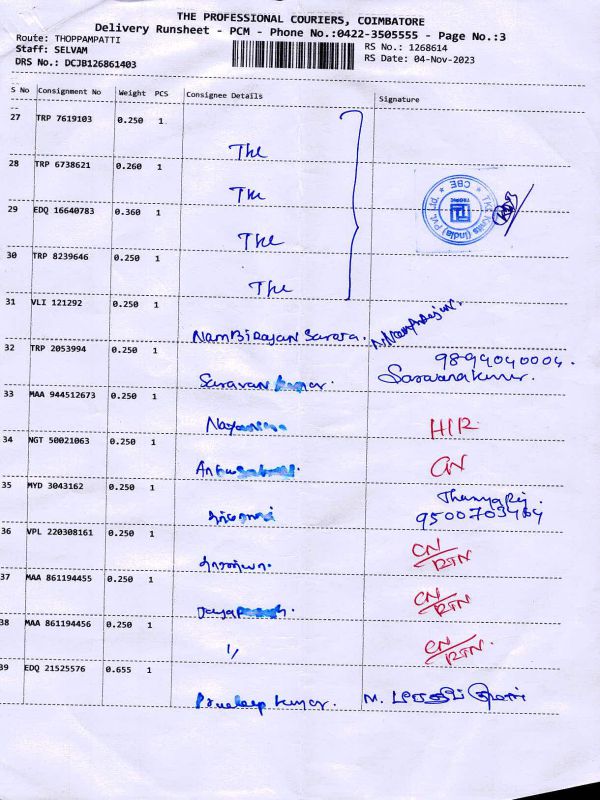 THE PROFESSIONAL COURIERS, COIMBATORE
Delivery Runsheet - PCM - Phone No.:0422-3505555 - Page No.:3
Route: THOPPAMPATTI
RS No.: 1268614
Staff: SELVAM
RS Date: 04-Nov-2023
DRS No.: DCJB126861403
S No Consignment No Weight PCS Consignee Details Signature
27 TRP 7619103 0.250 1
The
28 TRP 6738621 0.260 1
The
29 EDQ 16640783 0.360 1
The
TKT Knits (India) Pvt. Ltd. * CBE *
30 TRP 8239646 0.250 1
The
31 VLI 121292 0.250 1
Nambirajan Saroja.
32 TRP 2053994 0.250 1
9894040004.
Saravan kumar. Saravanakumar.
33 MAA 944512673 0.250 1
HIR
34 NGT 50021063 0.250 1
CN
35 MYD 3043162 0.250 1
9500703464
36 VPL 220308161 0.250 1
CN/RTN
37 MAA 861194455 0.250 1
CN/RTN
38 MAA 861194456 0.250 1
CN/RTN.
39 EDQ 21525576 0.655 1
Pradeep kumar. M.